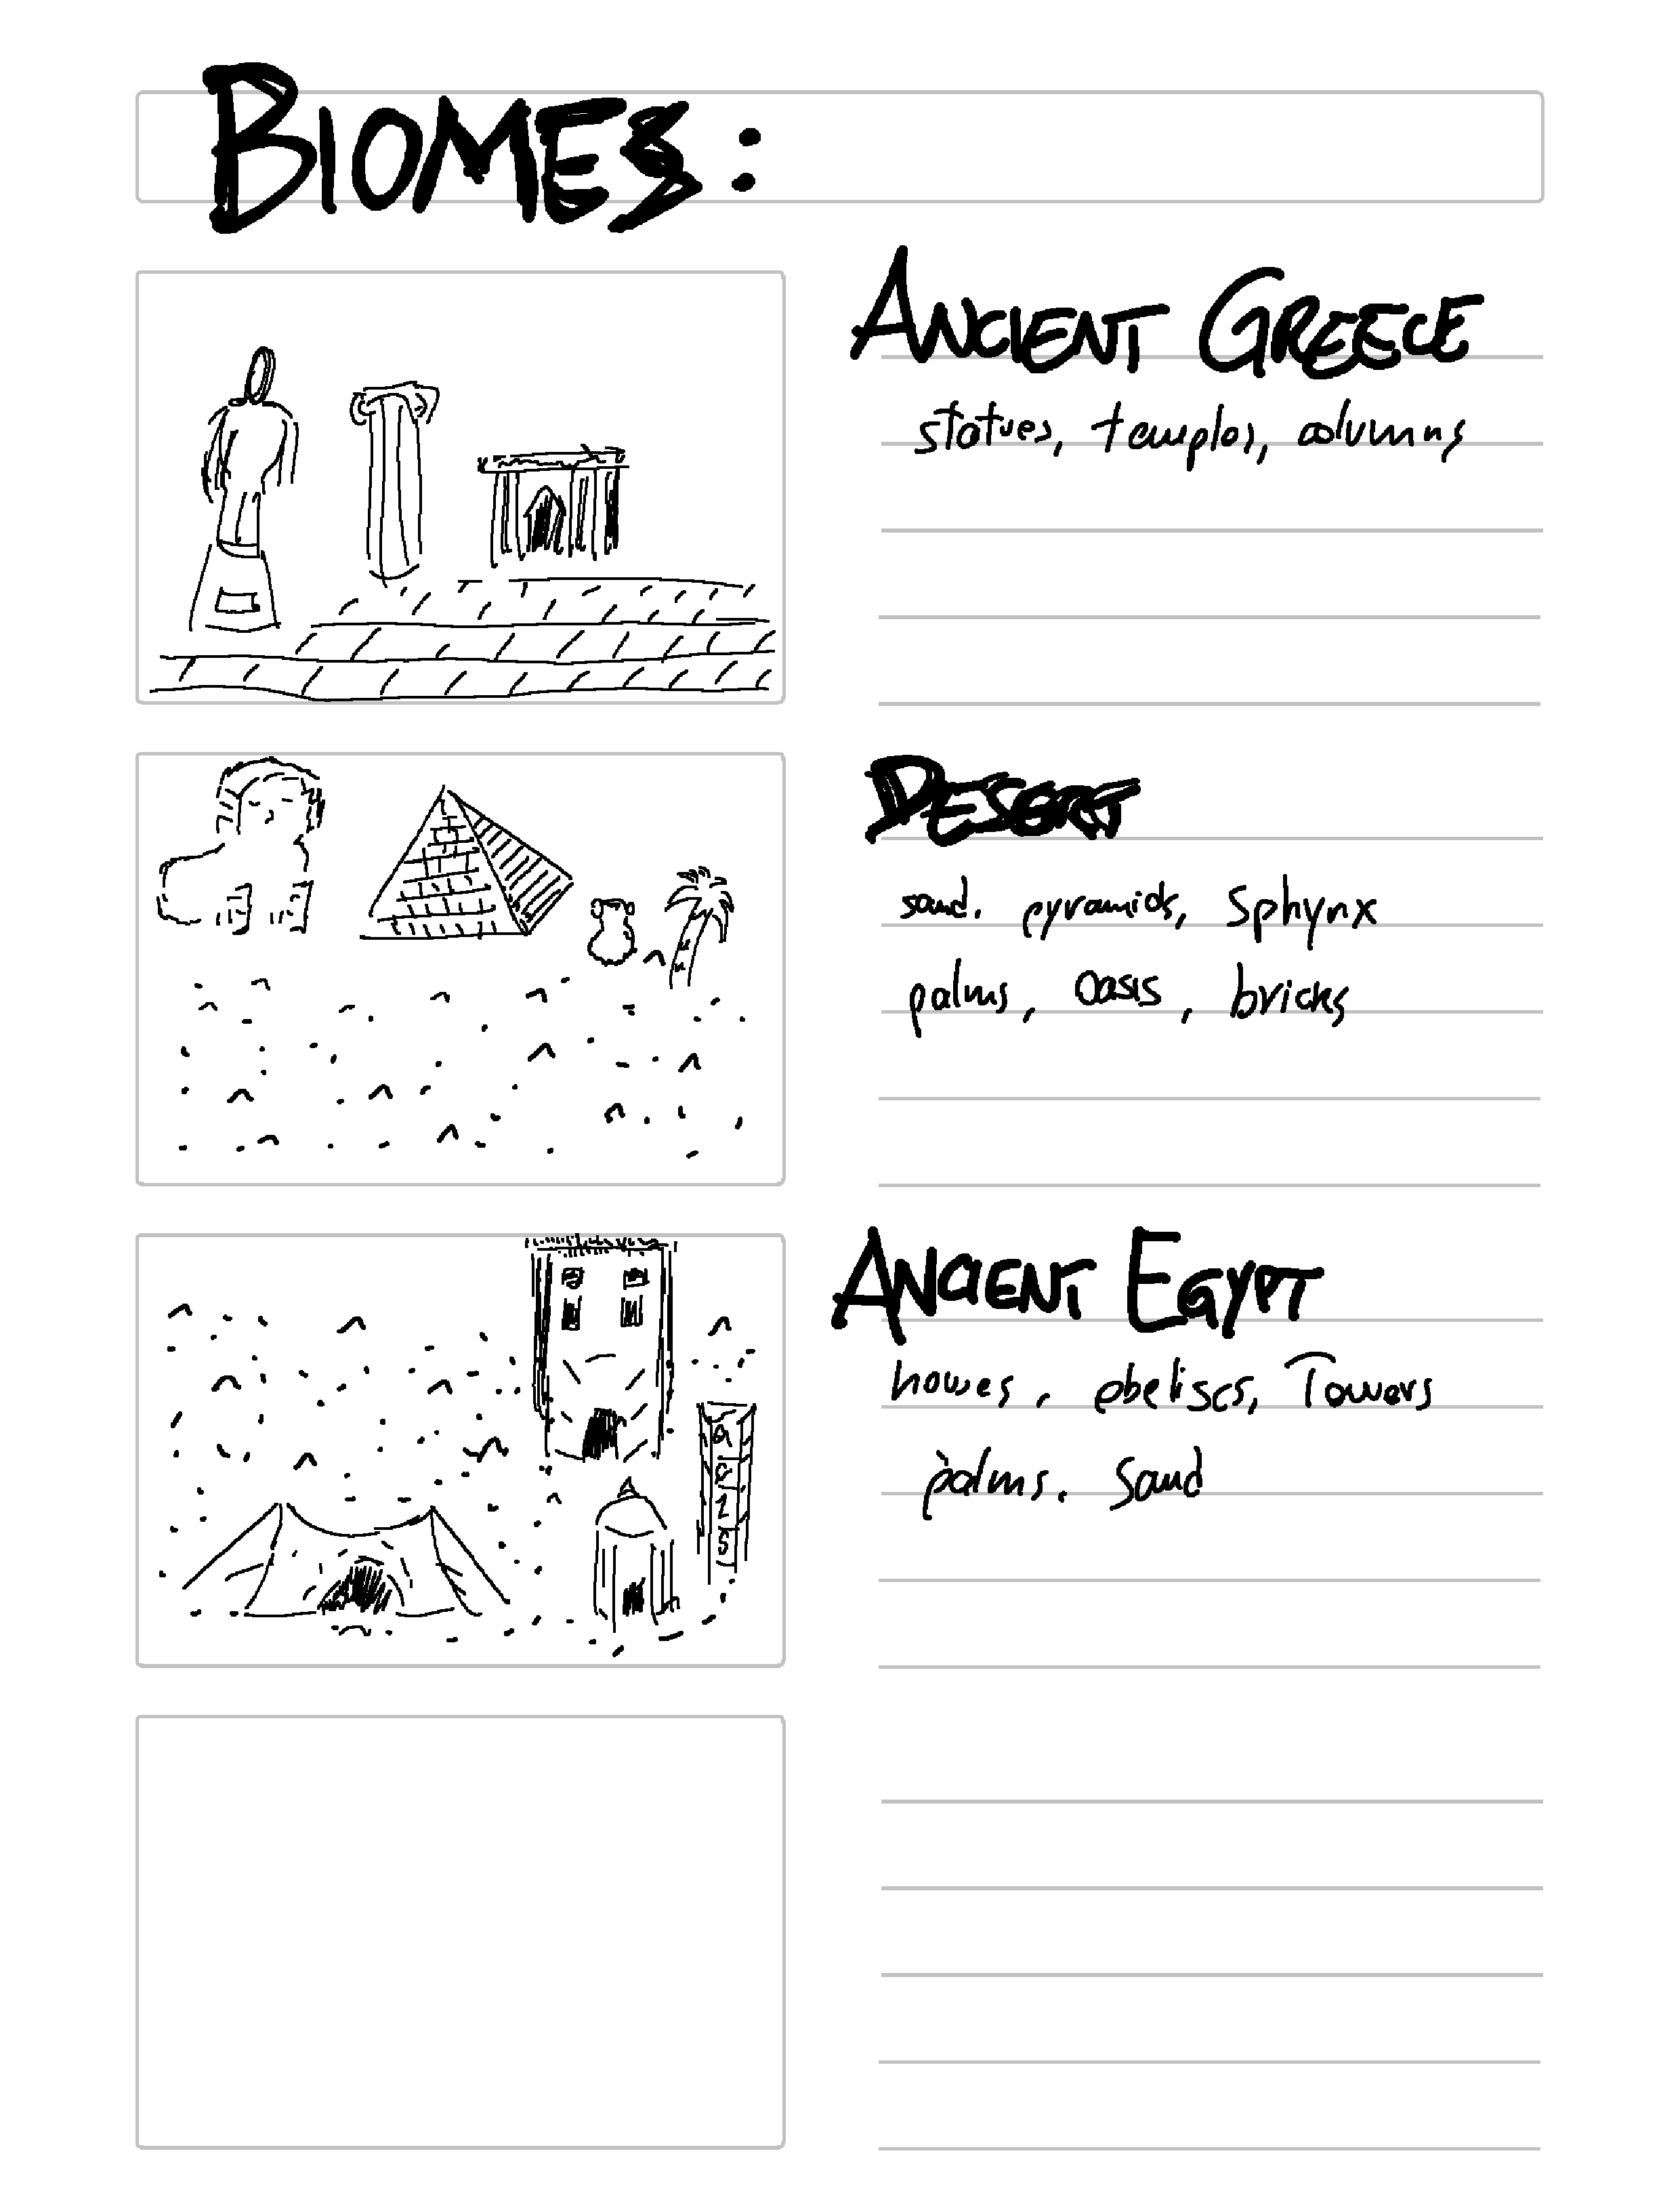 BIOMES:
ANCIENT GREECE
statues, temples, columns
DESERT
sand. pyramids, Sphynx
palms, Oasis, bricks
ANCIENT EGYPT
houses, obeliscs, Towers
palms. Sand